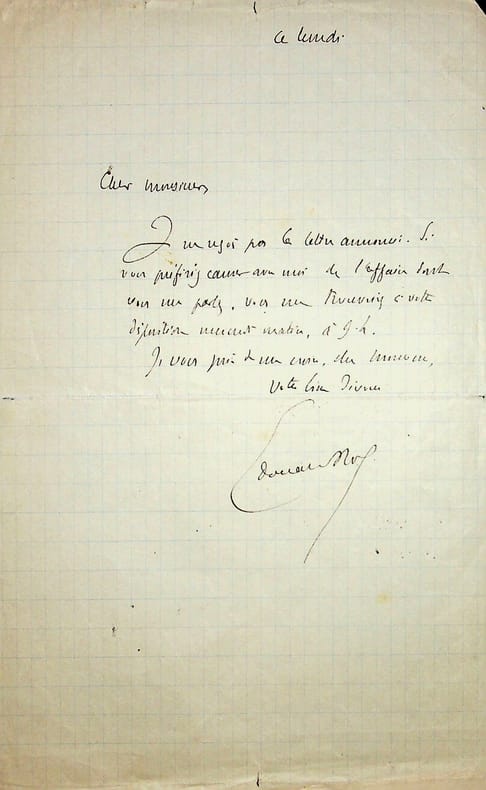 ce lundi
Cher monsieur,
Je ne reçois pas la lettre annoncée. Si
vous préfériez causer avec moi de l'affaire dont
vous me parlez, vous me trouverez à votre
disposition mercredi matin, à 9 h.
Je vous prie de me croire, cher monsieur,
votre bien dévoué
Edouard Rod